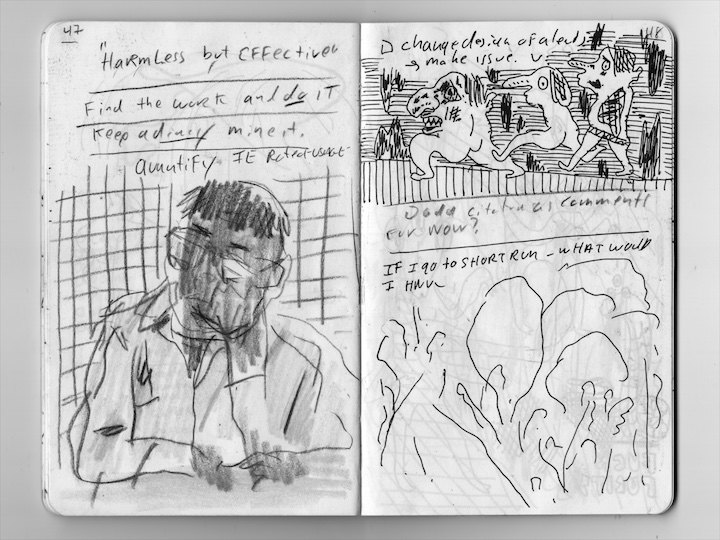 47
"Harmless but Effective"
Find the work and do IT
Keep a diary mine it.
Quantify IE Robot-usage
change design of alerts
→ make issue.
Dada citation as comments
For Now?
IF I go to SHORT RUN - WHAT WOULD
I HAVE